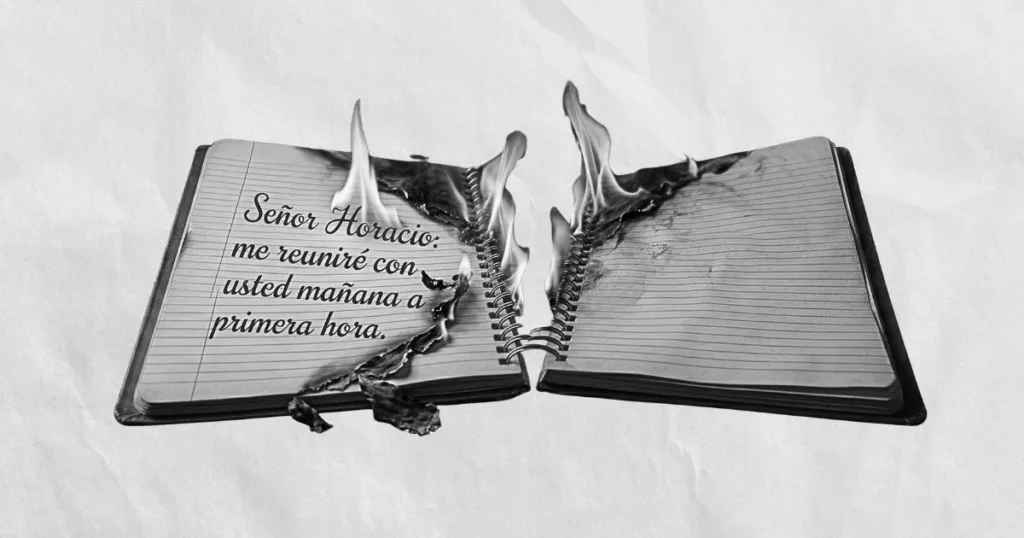 Señor Horacio:
me reuniré con
usted mañana a
primera hora.